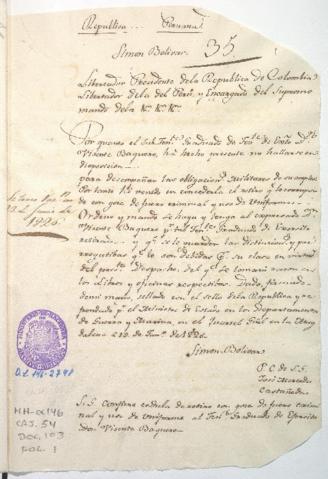 Republica Peruana
35
Simon Bolivar
Libertador Presidente de la Republica de Colombia
Libertador de la del Perú, y Encargado del Supremo
mando de la &a &a &a
Por quanto el Sub Ten.te Graduado de
Vicente Baquero, ha hecho presente no hallarse en
disposicion
para desempeñar las obligaciones Militares de su empleo
Por tanto he venido en concederle el retiro
con goze de fuero criminal y uso de Uniforme
Ordeno y mando se haya y tenga al expresado
Vicente Baquero p.r tal Ten.te Graduado de Exercito
retirado y q.e se le guarden las distinciones y pre
rrogativas q.e le son debidas
del pres.te Despacho, del q.e se tomará razon en
los Libros y oficinas respectivas. Dado, firmado
de mi mano, sellado con el sello de la Republica y re
frendado p.r el Ministro de Estado en los Departamentos
de Guerra y Marina, en el Quartel Gral en la Mag
dalena
1826
Simon Bolivar
P. O. de S. E.
José Mercedes
Castañeda
S. E. confiere cedula de retiro con goze de fuero crimi
nal y uso de uniforme al Ten.te Graduado de Exercito
Don Vicente Baquero
1826
O.L. 146-2741
MH-OL146
CAJ. 54
DOC. 103
FOL. 1